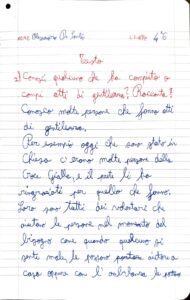 NOME Alessandro Di Santo CLASSE 4°C
Testo
1) Conosci qualcuno che ha compiuto o
compie atti di gentilezza? Racconta?
Conosco molte persone che fanno atti
di gentilezza.
Per esempio oggi che sono stato in
Chiesa c'erano molte persone della
Croce Gialla, e il prete li ha
ringraziati per quello che fanno.
Loro sono tutti dei volontari che
aiutano le persone nel momento del
bisogno come quando qualcuno si
sente male, le possono portare aiuto a
casa oppure con l'ambulanza le potano